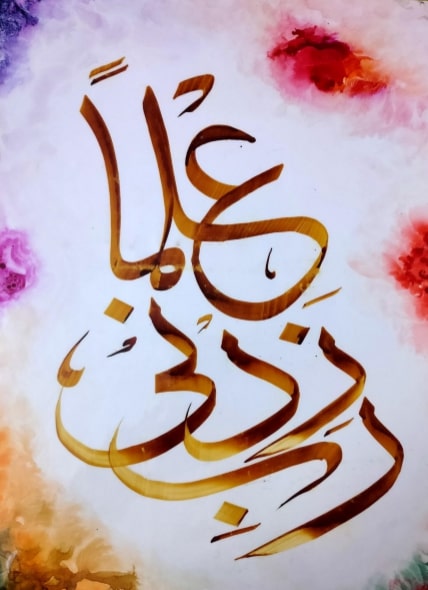 رَبِ
زِدْنى
عِلْماً